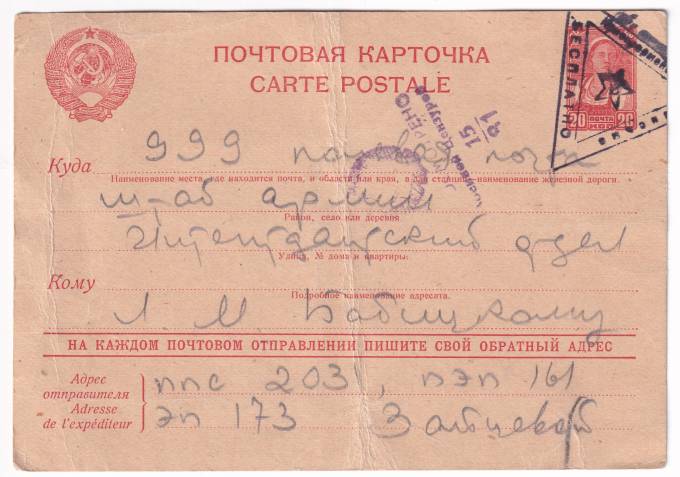 ПОЧТОВАЯ КАРТОЧКА
CARTE POSTALE
БЕСПЛАТНО
20 ПОЧТА 20
Куда 999 полевая почта
Наименование места, где находится почта, и области или края, а для станции—наименование железной дороги.
штаб армии
Район, село или деревня
Интендантский отдел
Улица, № дома и квартиры:
Кому
Подробное наименование адресата.
Л. М. Бабицкому
НА КАЖДОМ ПОЧТОВОМ ОТПРАВЛЕНИИ ПИШИТЕ СВОЙ ОБРАТНЫЙ АДРЕС
Адрес отправителя
Adresse de l'expéditeur
ппс 203, пэп 161
эп 173
15
81